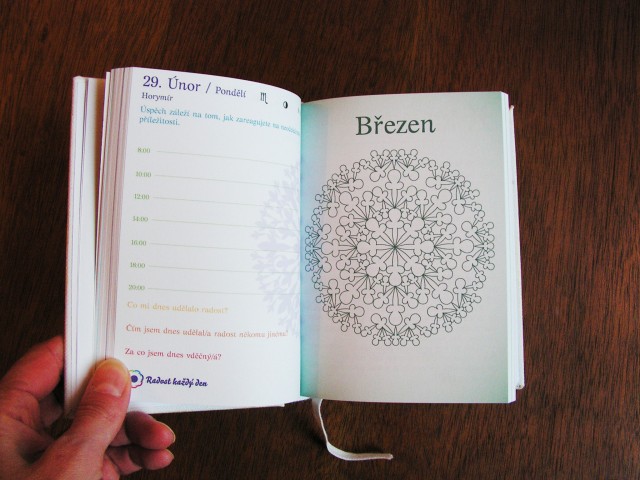 29. Únor / Pondělí
Horymír
♏ ◑
Úspěch záleží na tom, jak zareagujete na
příležitosti.
8:00
10:00
12:00
14:00
16:00
18:00
20:00
Co mi dnes udělalo radost?
Čím jsem dnes udělal/a radost někomu jinému?
Za co jsem dnes vděčný/á?
Radost každý den
Březen